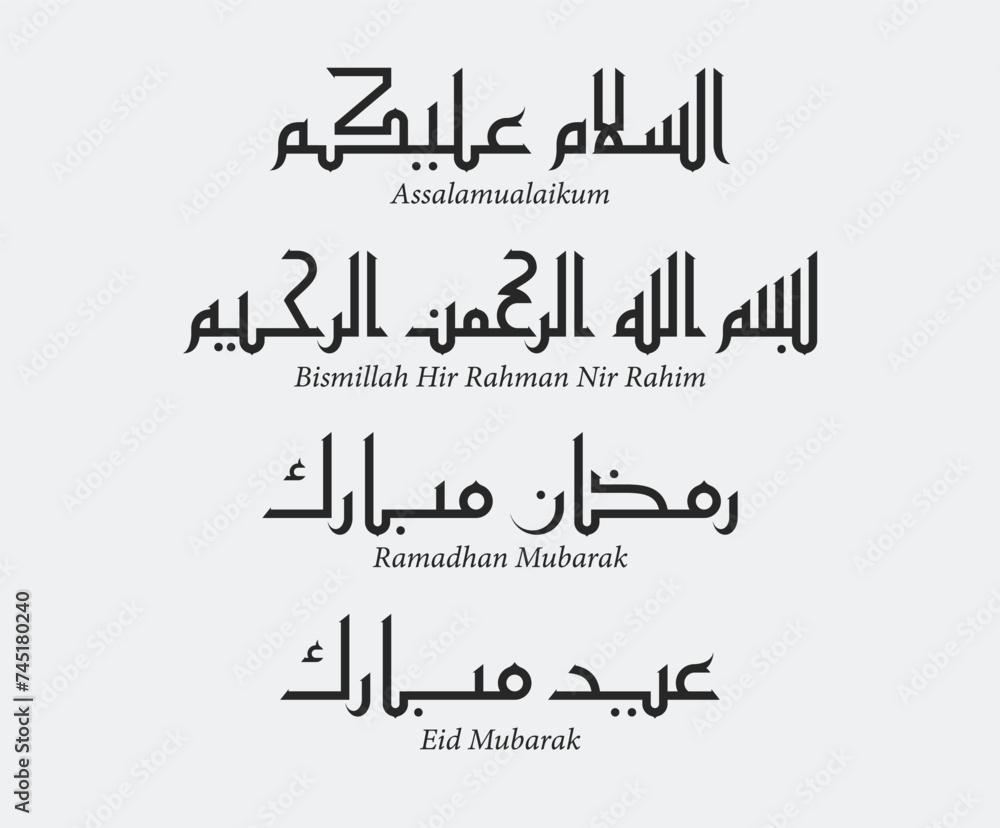 السلام عليكم
Assalamualaikum
بسم الله الرحمن الرحيم
Bismillah Hir Rahman Nir Rahim
رمضان مبارك
Ramadhan Mubarak
عيد مبارك
Eid Mubarak
Adobe Stock | #745180240